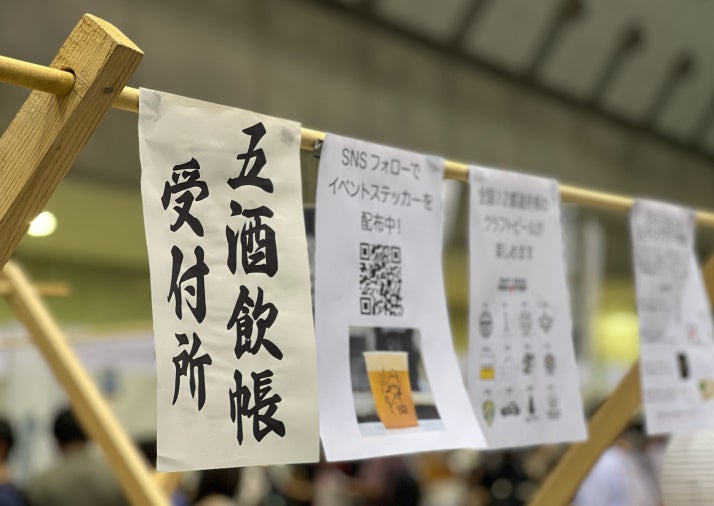 五酒飲帳
受付所
SNSフォローで
イベントステッカーを
配布中!
全国12都道府県の
クラフトビールが
楽しめます